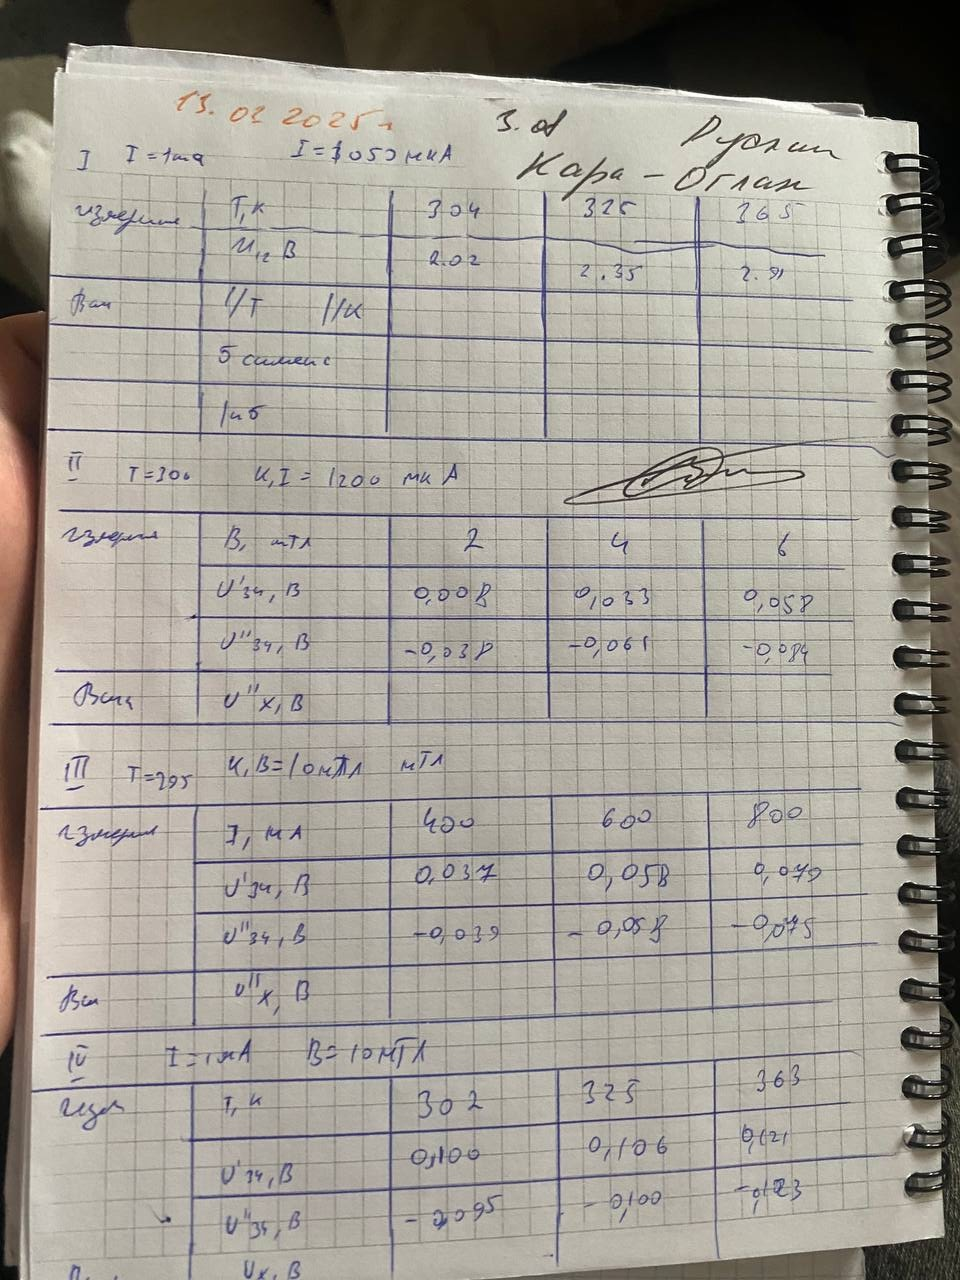 13.02 2025г
З.ог Руслан
Кара-Оглан
I I=1ma I=1050 мкА
T,К 304 325 365
U12 В 2.02 2.35 2.91
Выч 1/T 1/К
б сименс
ln б
II T=300 К, I=1200 мкА
Измерен B, мТл 2 4 6
U'34, В 0,008 0,033 0,058
U''34, В -0,038 -0,061 -0,084
U''x, В
III T=295 К, B=10мТл мТл
Измерен I, мА 400 600 800
U'34, В 0,037 0,058 0,079
U''34, В -0,039 -0,058 -0,075
Выч U''x, В
IV I=1мА B=10мТл
T, К 302 325 363
U'34, В 0,100 0,106 0,121
U''34, В -0,095 -0,100 -0,123
Ux, В